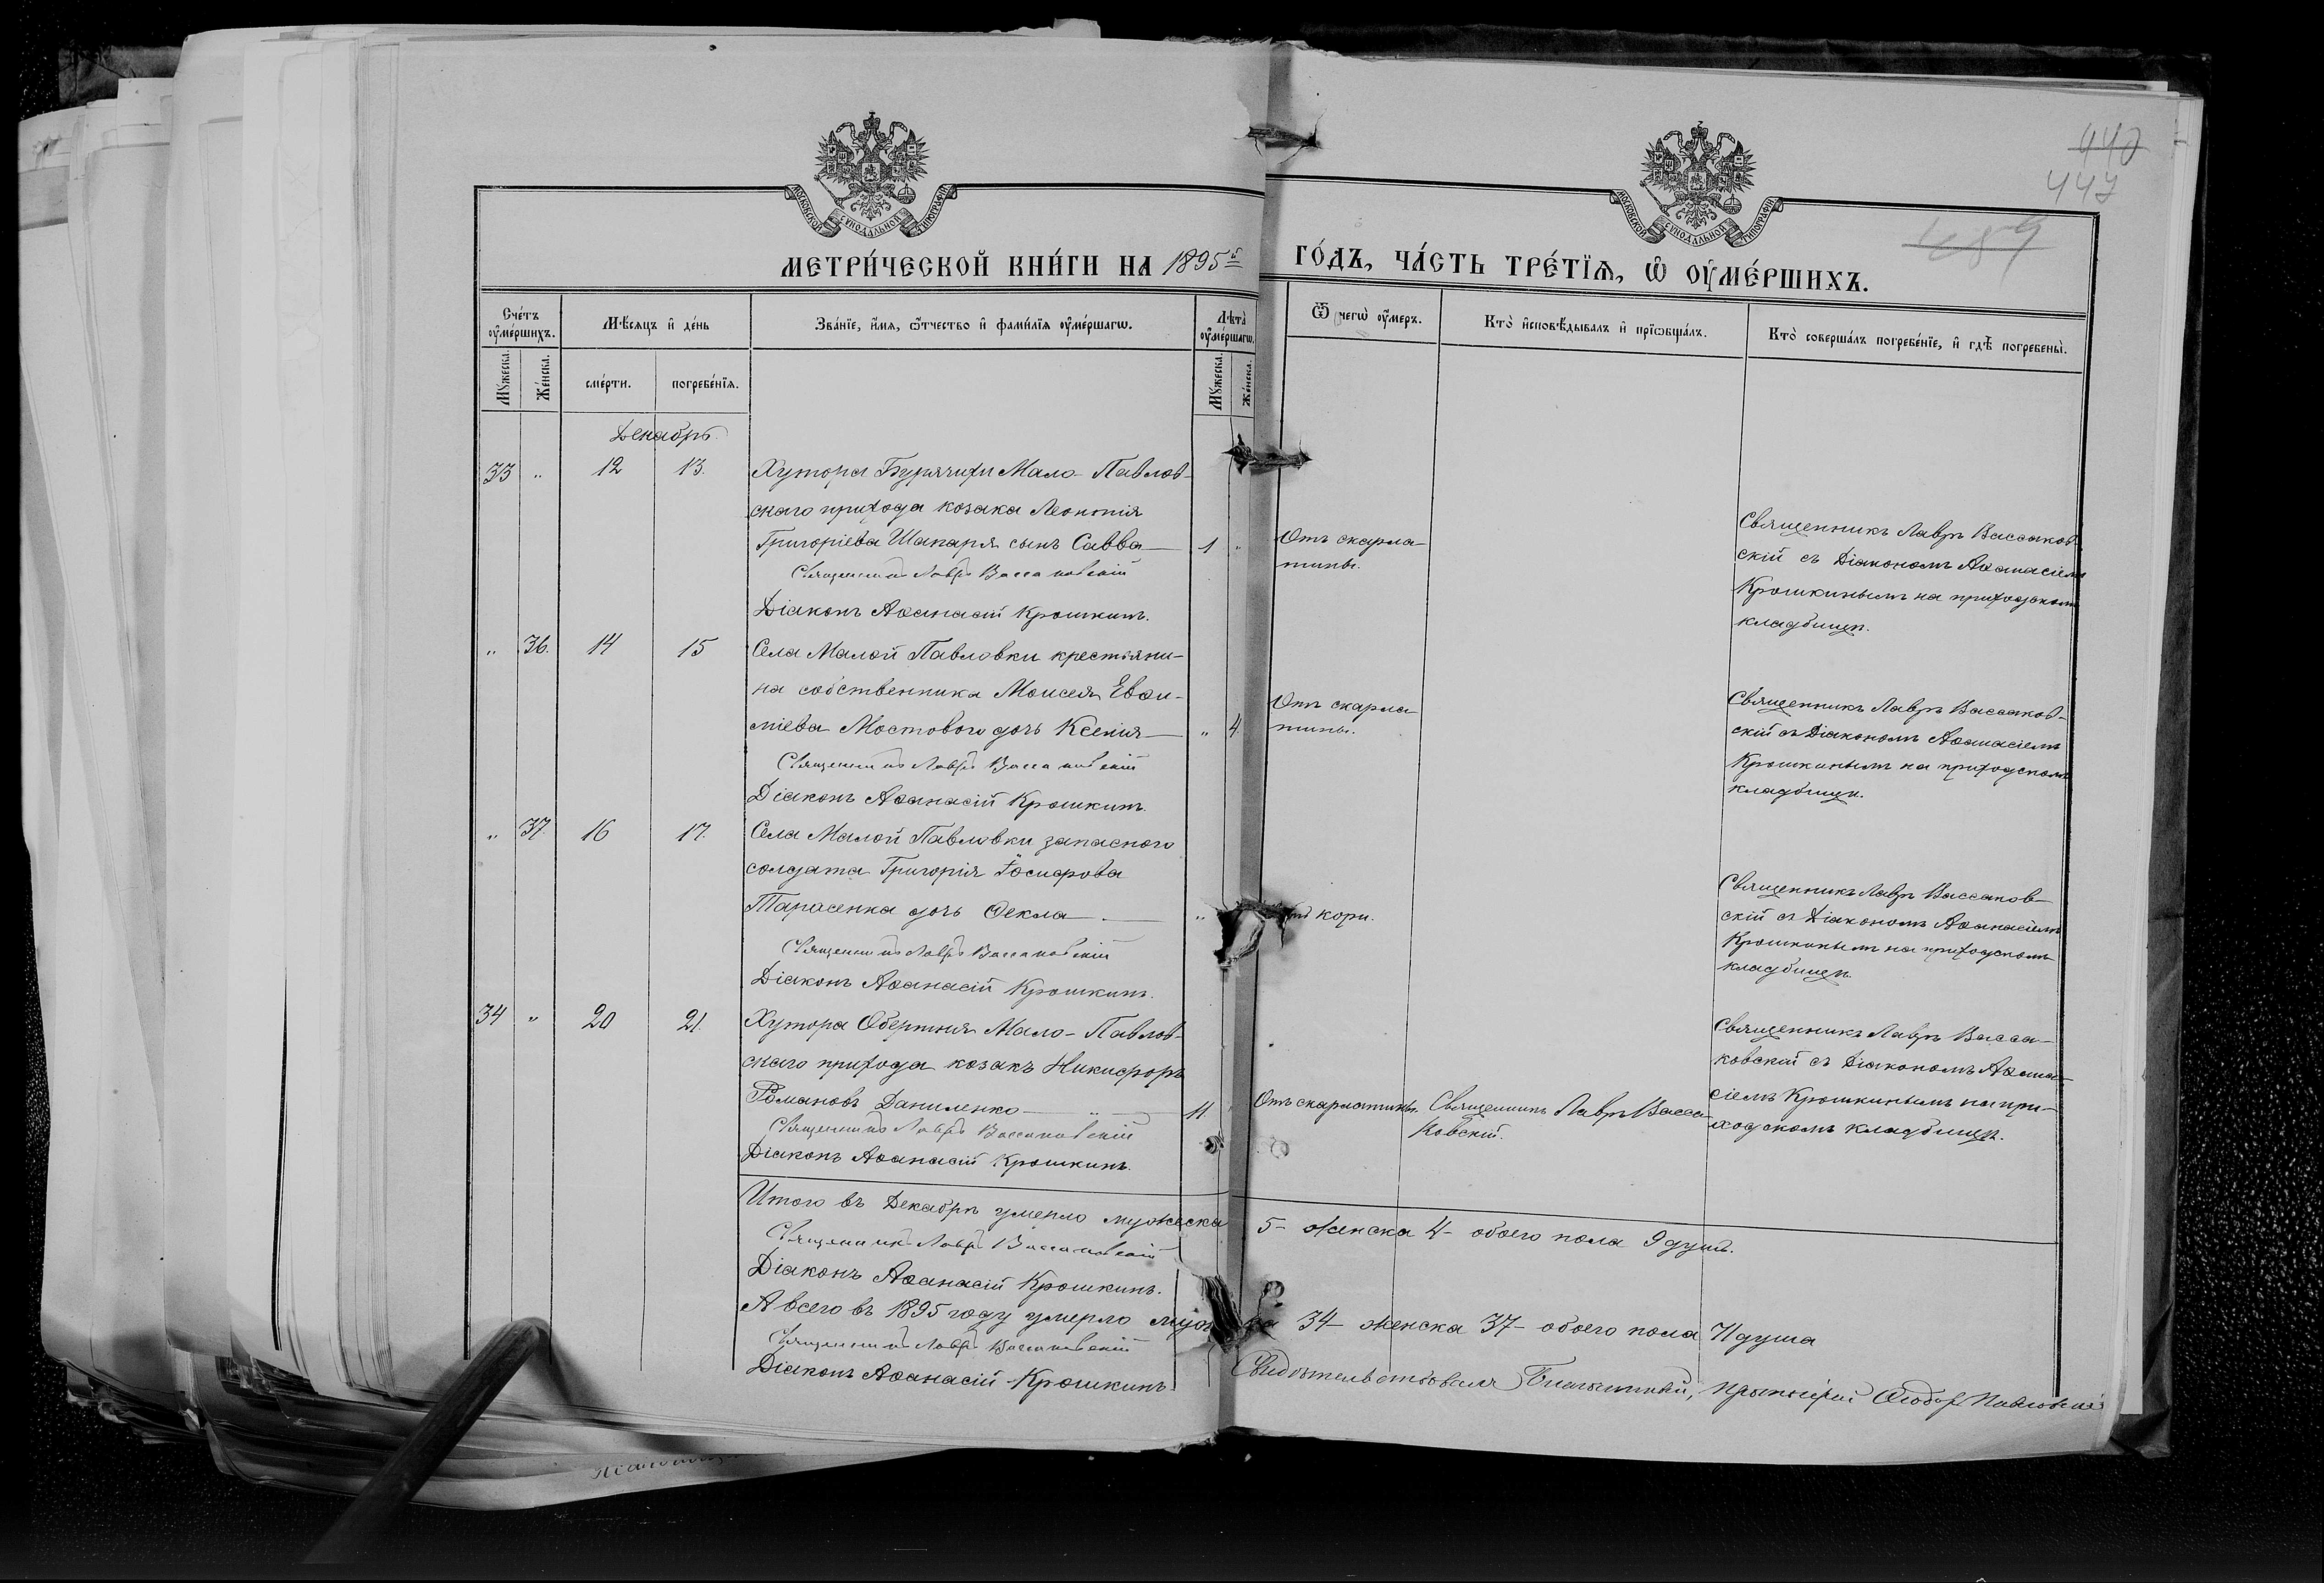 440
447
459
МОСКОВСКОЙ СѴНОДАЛЬНОЙ ТИПОГРАФІИ
МОСКОВСКОЙ СѴНОДАЛЬНОЙ ТИПОГРАФІИ
МЕТРИ́ЧЕСКОЙ КНИ́ГИ НА 1895й ГО́ДЪ, ЧА́СТЬ ТРЕ́ТЇѦ, Ѡ ОУ҆МЕ́РШИХЪ.
Сче́тъ оу҆ме́ршихъ.
Мꙋжеска.
Же́нска.
Мѣ́сѧцъ и҆ де́нь
сме́рти.
погребе́нїѧ.
Зва́нїе, и҆́мѧ, ѻ҆́тчество и҆ фами́лїѧ оу҆ме́ршагѡ.
Лѣ́та̀ оу҆ме́ршагѡ.
Мꙋжеска.
Же́нска.
Ѿ чегѡ̀ оу҆́меръ.
Кто̀ и҆сповѣ́дывалъ и҆ прїѡбща́лъ.
Кто̀ соверша́лъ погребе́нїе, и҆ гдѣ̀ погребены̀.
Декабрь.
33 „ 12 13. Хутора Бурячихи Мало-Павлов-
скаго прихода козака Леонтія
Григоріева Шапаря сынъ Савва — 1 „
Отъ скарла-
тины.
Священникъ Лавръ Вассаковскій
Діаконъ Аѳанасій Крошкинъ.
Священникъ Лавръ Вассаков-
скій съ Діакономъ Аѳанасіемъ
Крошкинымъ на приходскомъ
кладбищѣ.
„ 36. 14 15 Села Малой Павловки крестьяни-
на собственника Моисея Евѳи-
міева Мостового дочь Ксенія — „ 4
Отъ скарла-
тины.
Священникъ Лавръ Вассаковскій
Діаконъ Аѳанасій Крошкинъ.
Священникъ Лавръ Вассаков-
скій съ Діакономъ Аѳанасіемъ
Крошкинымъ на приходскомъ
кладбищѣ.
„ 37 16 17. Села Малой Павловки запасного
солдата Григорія Іосифова
Тарасенка дочь Ѳекла — „
кори.
Священникъ Лавръ Вассаковскій
Діаконъ Аѳанасій Крошкинъ.
Священникъ Лавръ Вассаков-
скій съ Діакономъ Аѳанасіемъ
Крошкинымъ на приходскомъ
кладбищѣ.
34 „ 20 21. Хутора Обертня Мало-Павлов-
скаго прихода козакъ Никифоръ
Романовъ Даниленко — „ — 11
Отъ скарлатины.
Священникъ Лавръ Васса-
ковскій.
Священникъ Лавръ Вассаковскій
Діаконъ Аѳанасій Крошкинъ.
Священникъ Лавръ Васса-
ковскій съ Діакономъ Аѳана-
сіемъ Крошкинымъ на при-
ходскомъ кладбищѣ.
Итого въ Декабрѣ умерло мужеска 5- женска 4- обоего пола 9 душъ.
Священникъ Лавръ Вассаковскій
Діаконъ Аѳанасій Крошкинъ.
А всего въ 1895 году умерло 34- женска 37- обоего пола 71 душа
Священникъ Лавръ Вассаковскій
Діаконъ Аѳанасій Крошкинъ
Свидѣтельствовалъ Благочинный, Протоіерей Ѳеодоръ